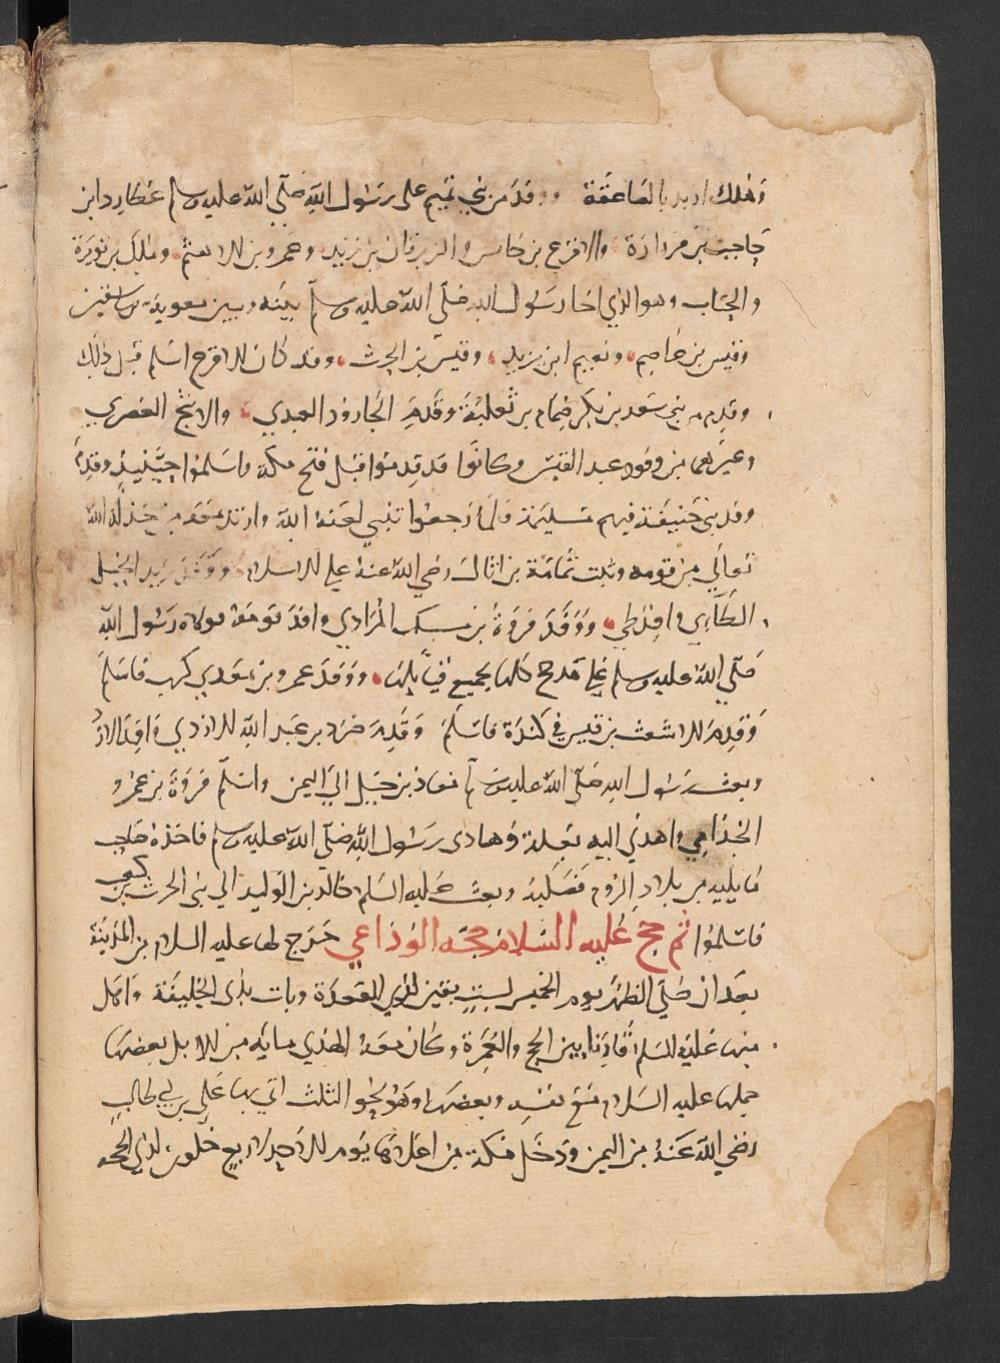 وهلك اربد بالصاعقة ووفد من بني تميم على رسول الله صلى الله عليه وسلم عطارد ابن
حاجب بن زرارة والاقرع بن حابس والزبرقان بن زيد وعمرو بن الاهتم ومالك بن نويرة
والحتات وهو الذي اخا رسول الله صلى الله عليه وسلم بينه وبين معوية بن سفين
وقيس بن عاصم ونعيم ابن يزيد وقيس بن الحرث وقد كان الاقرع اسلم قبل ذلك
وقدم من بني سعد بن بكر ضمام بن ثعلبة وقدم الجارود العبدي والاشج العصري
وغيرهما من وفود عبد القيس وكانوا قد قدموا قبل فتح مكة واسلموا حينيذ وقدم
وفد بني حنيفة فيهم مسيلمة فلما رجعوا تنبي لعنه الله وارتد معه من خذله الله
تعالي من قومه وثبت ثمامة بن اثال رضي الله عنه علي الاسلام ووفد زيد الخيل
الطاءي وافد طي ووفد فروة بن مسيك المرادي وافد قومه فولاه رسول الله
صلي الله عليه وسلم علي مدحج كلها بجميع قبايلها ووفد عمرو بن معدي كرب فاسلم
وقدم الاشعث بن قيس في كندة فاسلم وقدم صرد بن عبد الله الازدي وافد الازد
وبعث رسول الله صلي الله عليه وسلم معاذ بن جبل الي اليمن واسلم فروة بن عمرو
الجذامي واهدي اليه بغلة وهادى رسول الله صلى الله عليه وسلم فاخذه صاحب
ما يليه من بلاد الروم فصلبه وبعث عليه السلم خالد بن الوليد الي بني الحرث بن كعب
فاسلموا ثم حج عليه السلام حجه الوداعي خرج لها عليه السلام من المدينة
بعد ان صلي الظهر يوم الخميس لست بقين لذي القعدة وبات بذى الحليفة واهل
منها عليه السلم قارنا بين الحج والعمرة وكان معه الهدي مايه من الابل بعضها
حملها عليه السلام مع نفسه وبعضها وهو نحو الثلث اتي بها علي بن ابي طالب
رضي الله عنه من اليمن ودخل مكة من اعلاها يوم الاحد لاربع خلون لذي الحجه